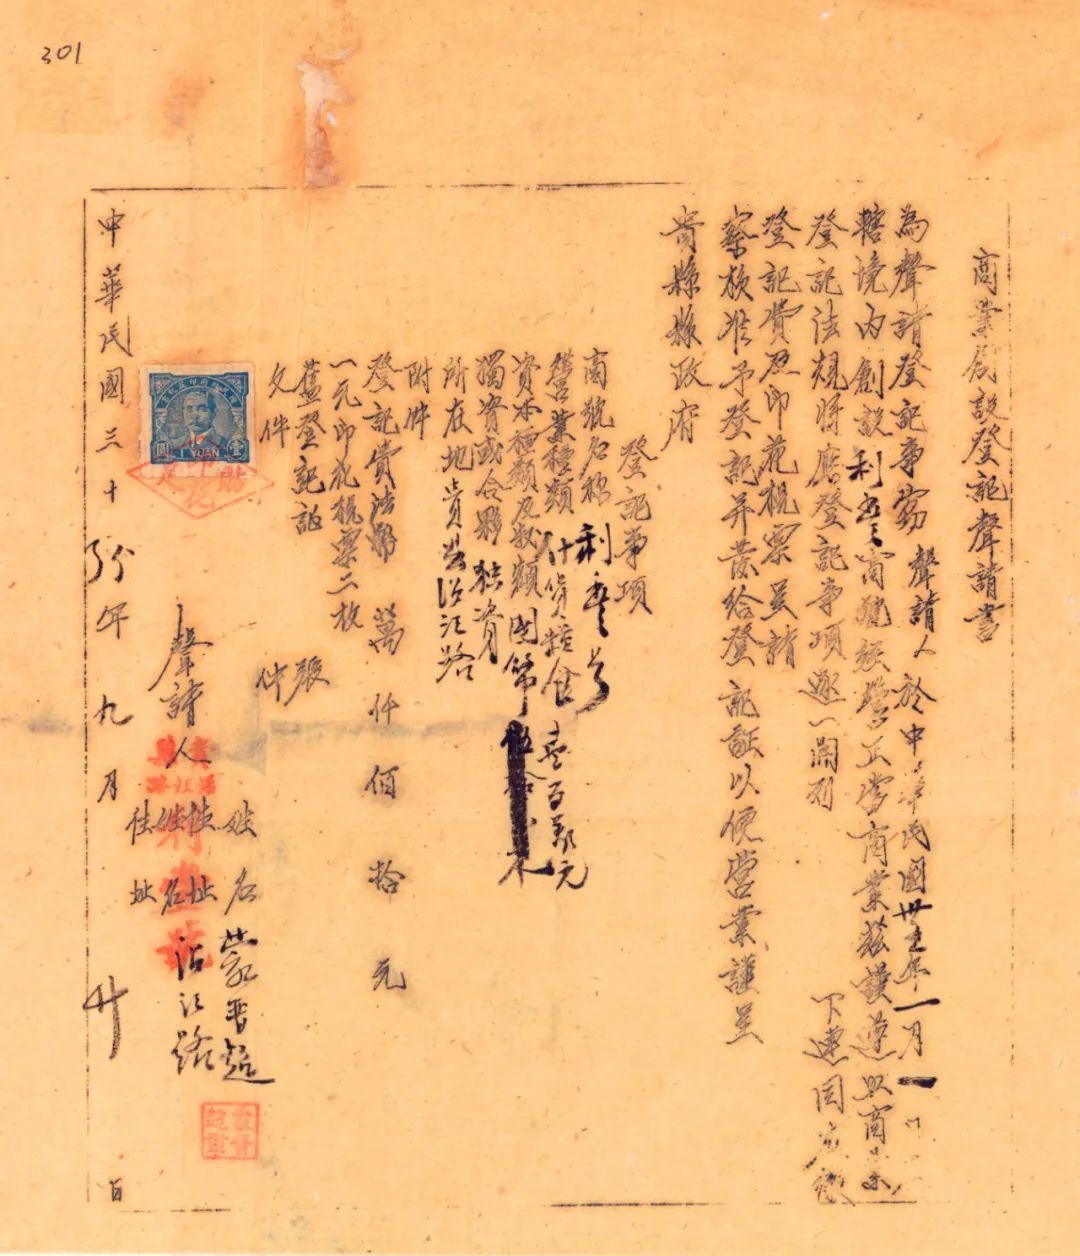 301
商業創設登記聲請書
為聲請登記事窃聲請人於中華民國卅五年一月一
轄境内創設利豐商號經營正當商業茲謹遵照商業
登記法規將應登記事項逐一開列下連同應繳
登記費及印花税票呈請
察核准予登記并發給登記証以便營業謹呈
貴縣縣政府
登記事項
商號名称 利豐号
營業種類 什貨糧食
資本種類及数額 國幣 壹百萬元
獨資或合夥 独資
所在地 貴县沿江路
附件
登記費法幣 萬 仟 佰 拾 元
一元印花税票二枚
舊登記証 張
文件 件
聲請人 姓名 蒙晋超
住址 沿江路
姓名
住址
中華民國三十五年九月廿日
壹圓
1 YUAN
利豐號